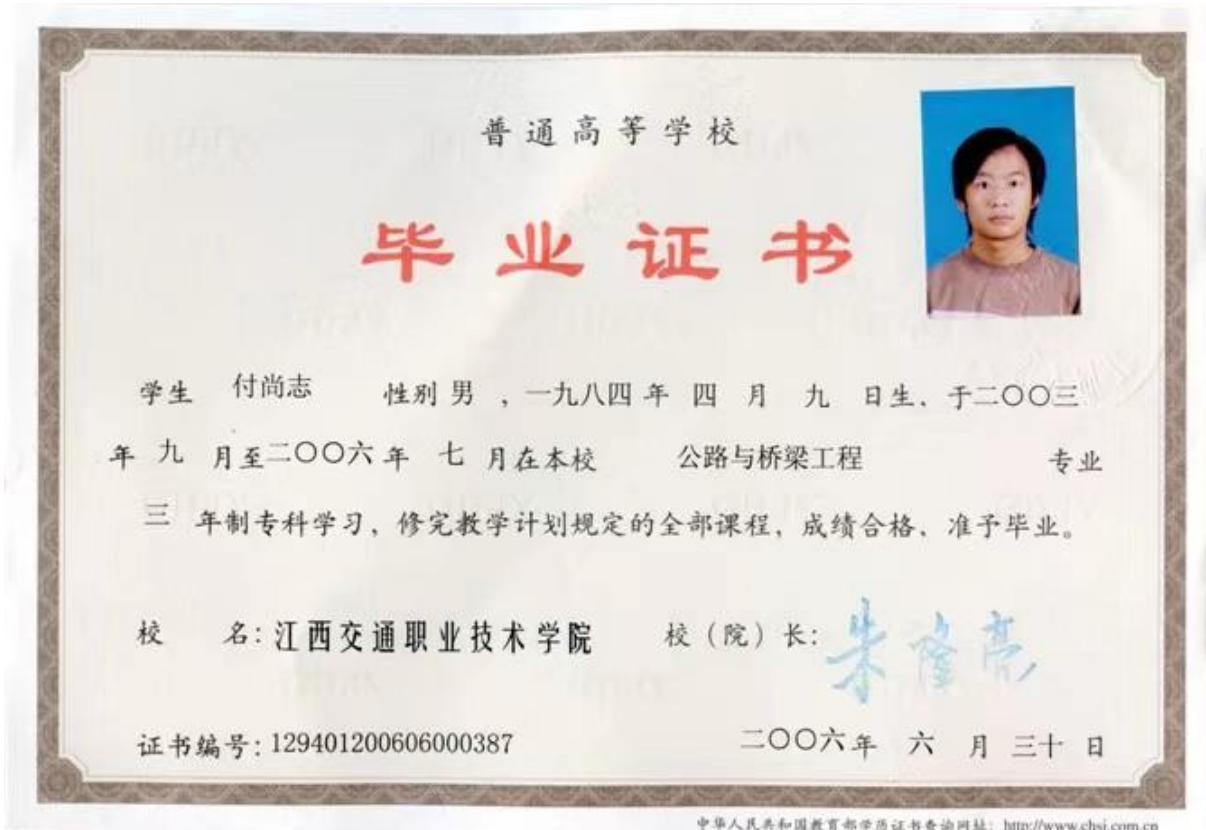 普通高等学校
毕业证书
学生 付尚志 性别 男 ，一九八四 年 四 月 九 日生、于二〇〇三
年 九 月至二〇〇六 年 七 月在本校 公路与桥梁工程 专业
三 年制专科学习，修完教学计划规定的全部课程，成绩合格、准予毕业。
校 名：江西交通职业技术学院 校（院）长：朱隆亮
证书编号：129401200606000387 二〇〇六年 六 月 三十 日
中华人民共和国教育部学历证书查询网址：http://www.chsi.com.cn